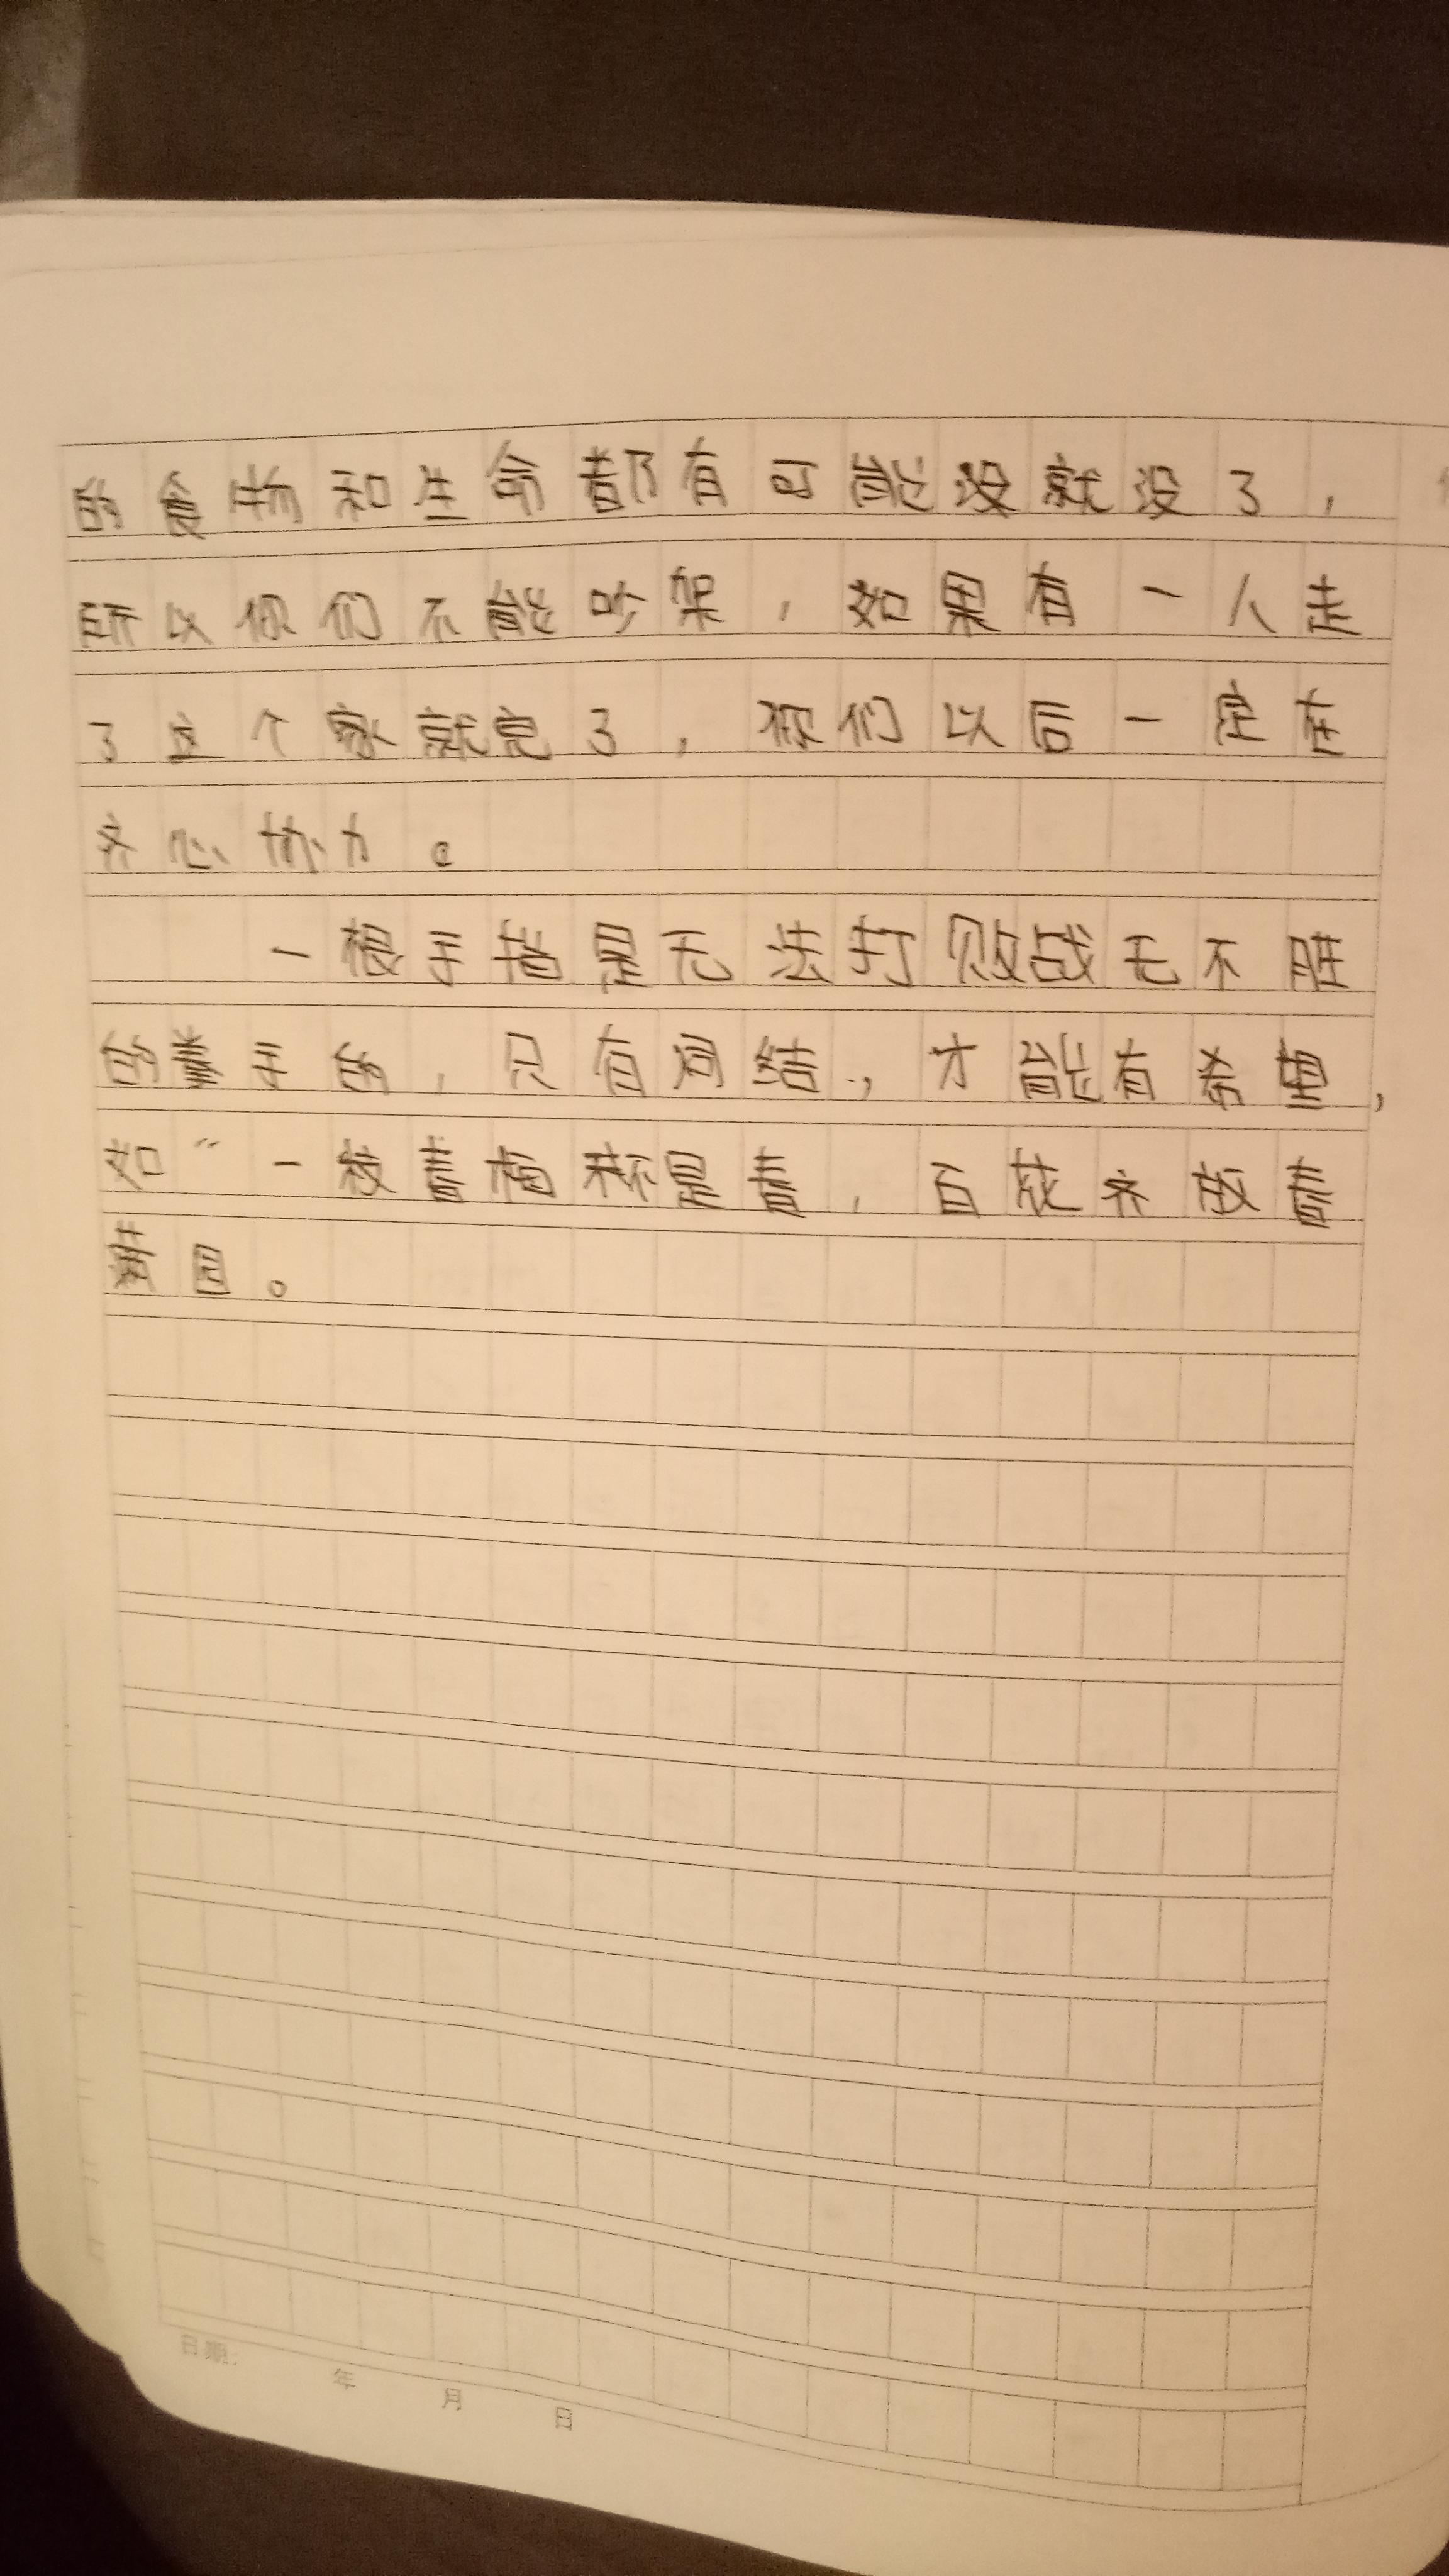 的食物和生命都有可能没就没了，
所以你们不能吵架，如果有一人走
了这个家就完了，你们以后一定在
齐心协力。
一根手指是无法打败战无不胜
的拳手的，只有团结，才能有希望，
如“一枝春梅不是春，百花齐放春
满园。
日期： 年 月 日